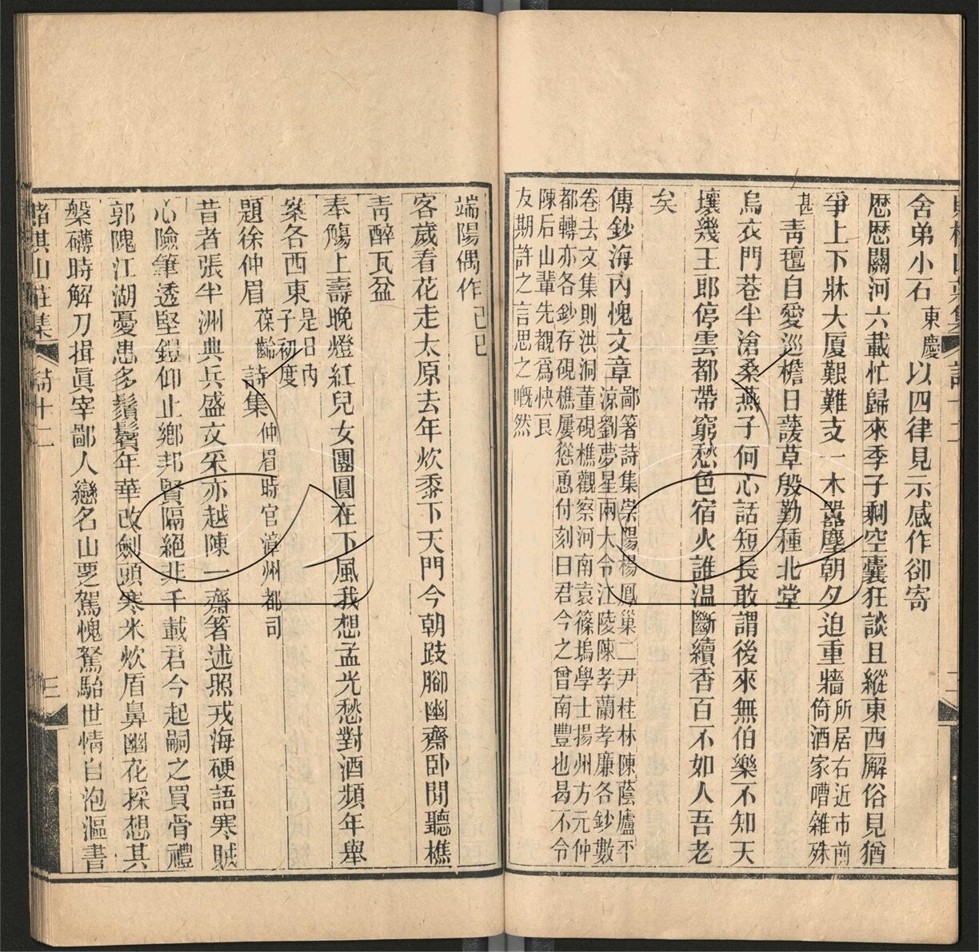 舍弟小石東慶以四律見示感作卻寄
歷歷關河六載忙歸來季子剩空囊狂談且縱東西解俗見猶
爭上下牀大厦艱難支一木囂塵朝夕迫重牆所居右近市前倚酒家嘈雜殊
甚靑氊自愛巡檐日護草殷勤種北堂
烏衣門巷半滄桑燕子何心話短長敢謂後來無伯樂不知天
壤幾王郎停雲都帶窮愁色宿火誰溫斷續香百不如人吾老
矣
傳鈔海內愧文章鄙箸詩集崇陽楊鳳巢二尹桂林陳蔭廬平
涼劉夢星兩大令江陵陳孝蘭孝廉各鈔數
卷去文集則洪洞董硯樵觀察河南袁篠塢學士揚州方元仲
都轉亦各鈔存硯樵屢慫恿付刻曰君今之曾南豐也曷不令
陳后山輩先覩爲快良
友期許之言思之嘅然
端陽偶作己巳
客歲看花走太原去年炊黍下天門今朝跂腳幽齋臥閒聽樵
靑醉瓦盆
奉觴上壽晚燈紅兒女團圓在下風我想孟光愁對酒頻年舉
案各西東是日內子初度
題徐仲眉葆齡詩集仲眉時官漳州都司
昔者張半洲典兵盛文采亦越陳一齋箸述照戎海硬語寒賊
心險筆透堅鎧仰止鄉邦賢隔絕非千載君今起嗣之買骨禮
郭隗江湖憂患多鬚鬢年華改劍頭寒米炊盾鼻幽花採想其
槃礴時解刀揖眞宰鄙人戀名山耍駕愧駑駘世情白泡漚書
賭棋山莊集
詩十二
三